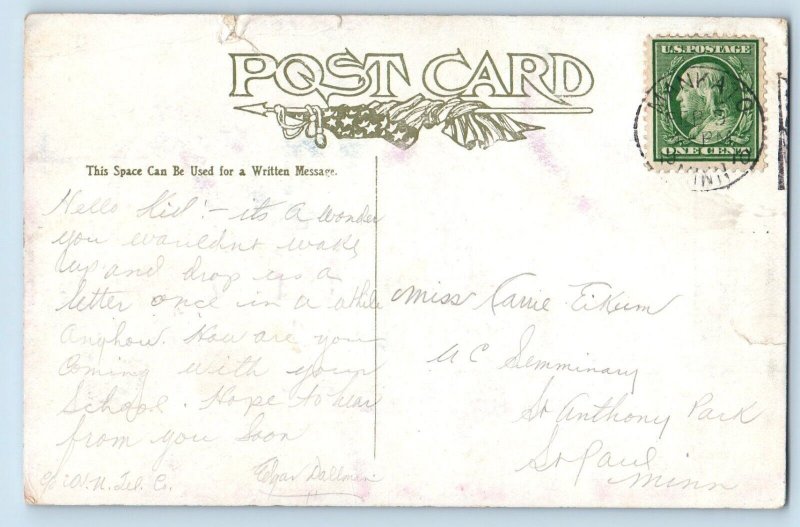 POST CARD
U.S. POSTAGE
ONE CENT
MANKATO
MINN
This Space Can Be Used for a Written Message.
Hello Kid! - its a wonder
you wouldnt wake
up and drop us a
letter once in a while
Anyhow. How are you
coming with your
School. Hope to hear
from you soon
Edgar Dallman
N. Tel. Co.
Miss Carrie Eikum
U C Semminary
St Anthony Park
St Paul
Minn